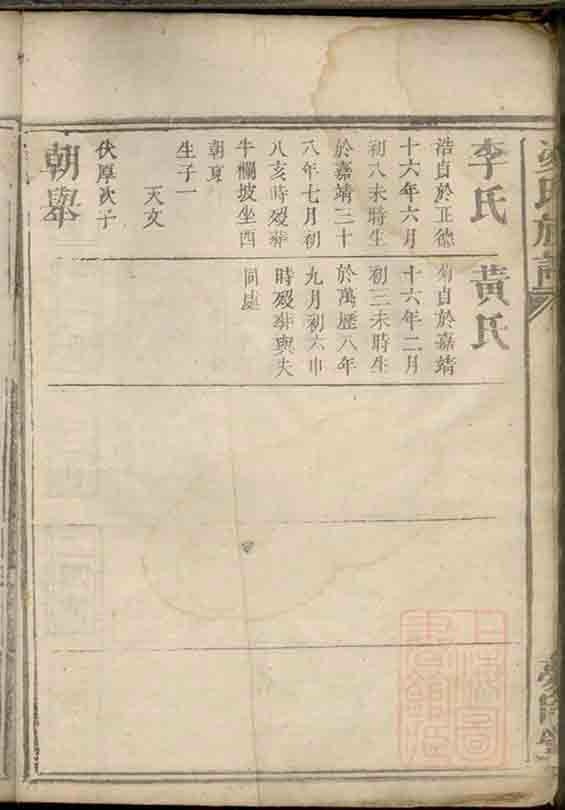 氏族譜
李氏
浩貞於正德
十六年六月
初八未時生
於嘉靖三十
八年七月初
八亥時歿葬
牛欄坡坐酉
朝夏
生子一
天文
伏厚次子
朝舉
黃氏
菊貞於嘉靖
十六年二月
初三未時生
於萬歷八年
九月初六申
時歿葬與夫
同處
上海圖
書館藏